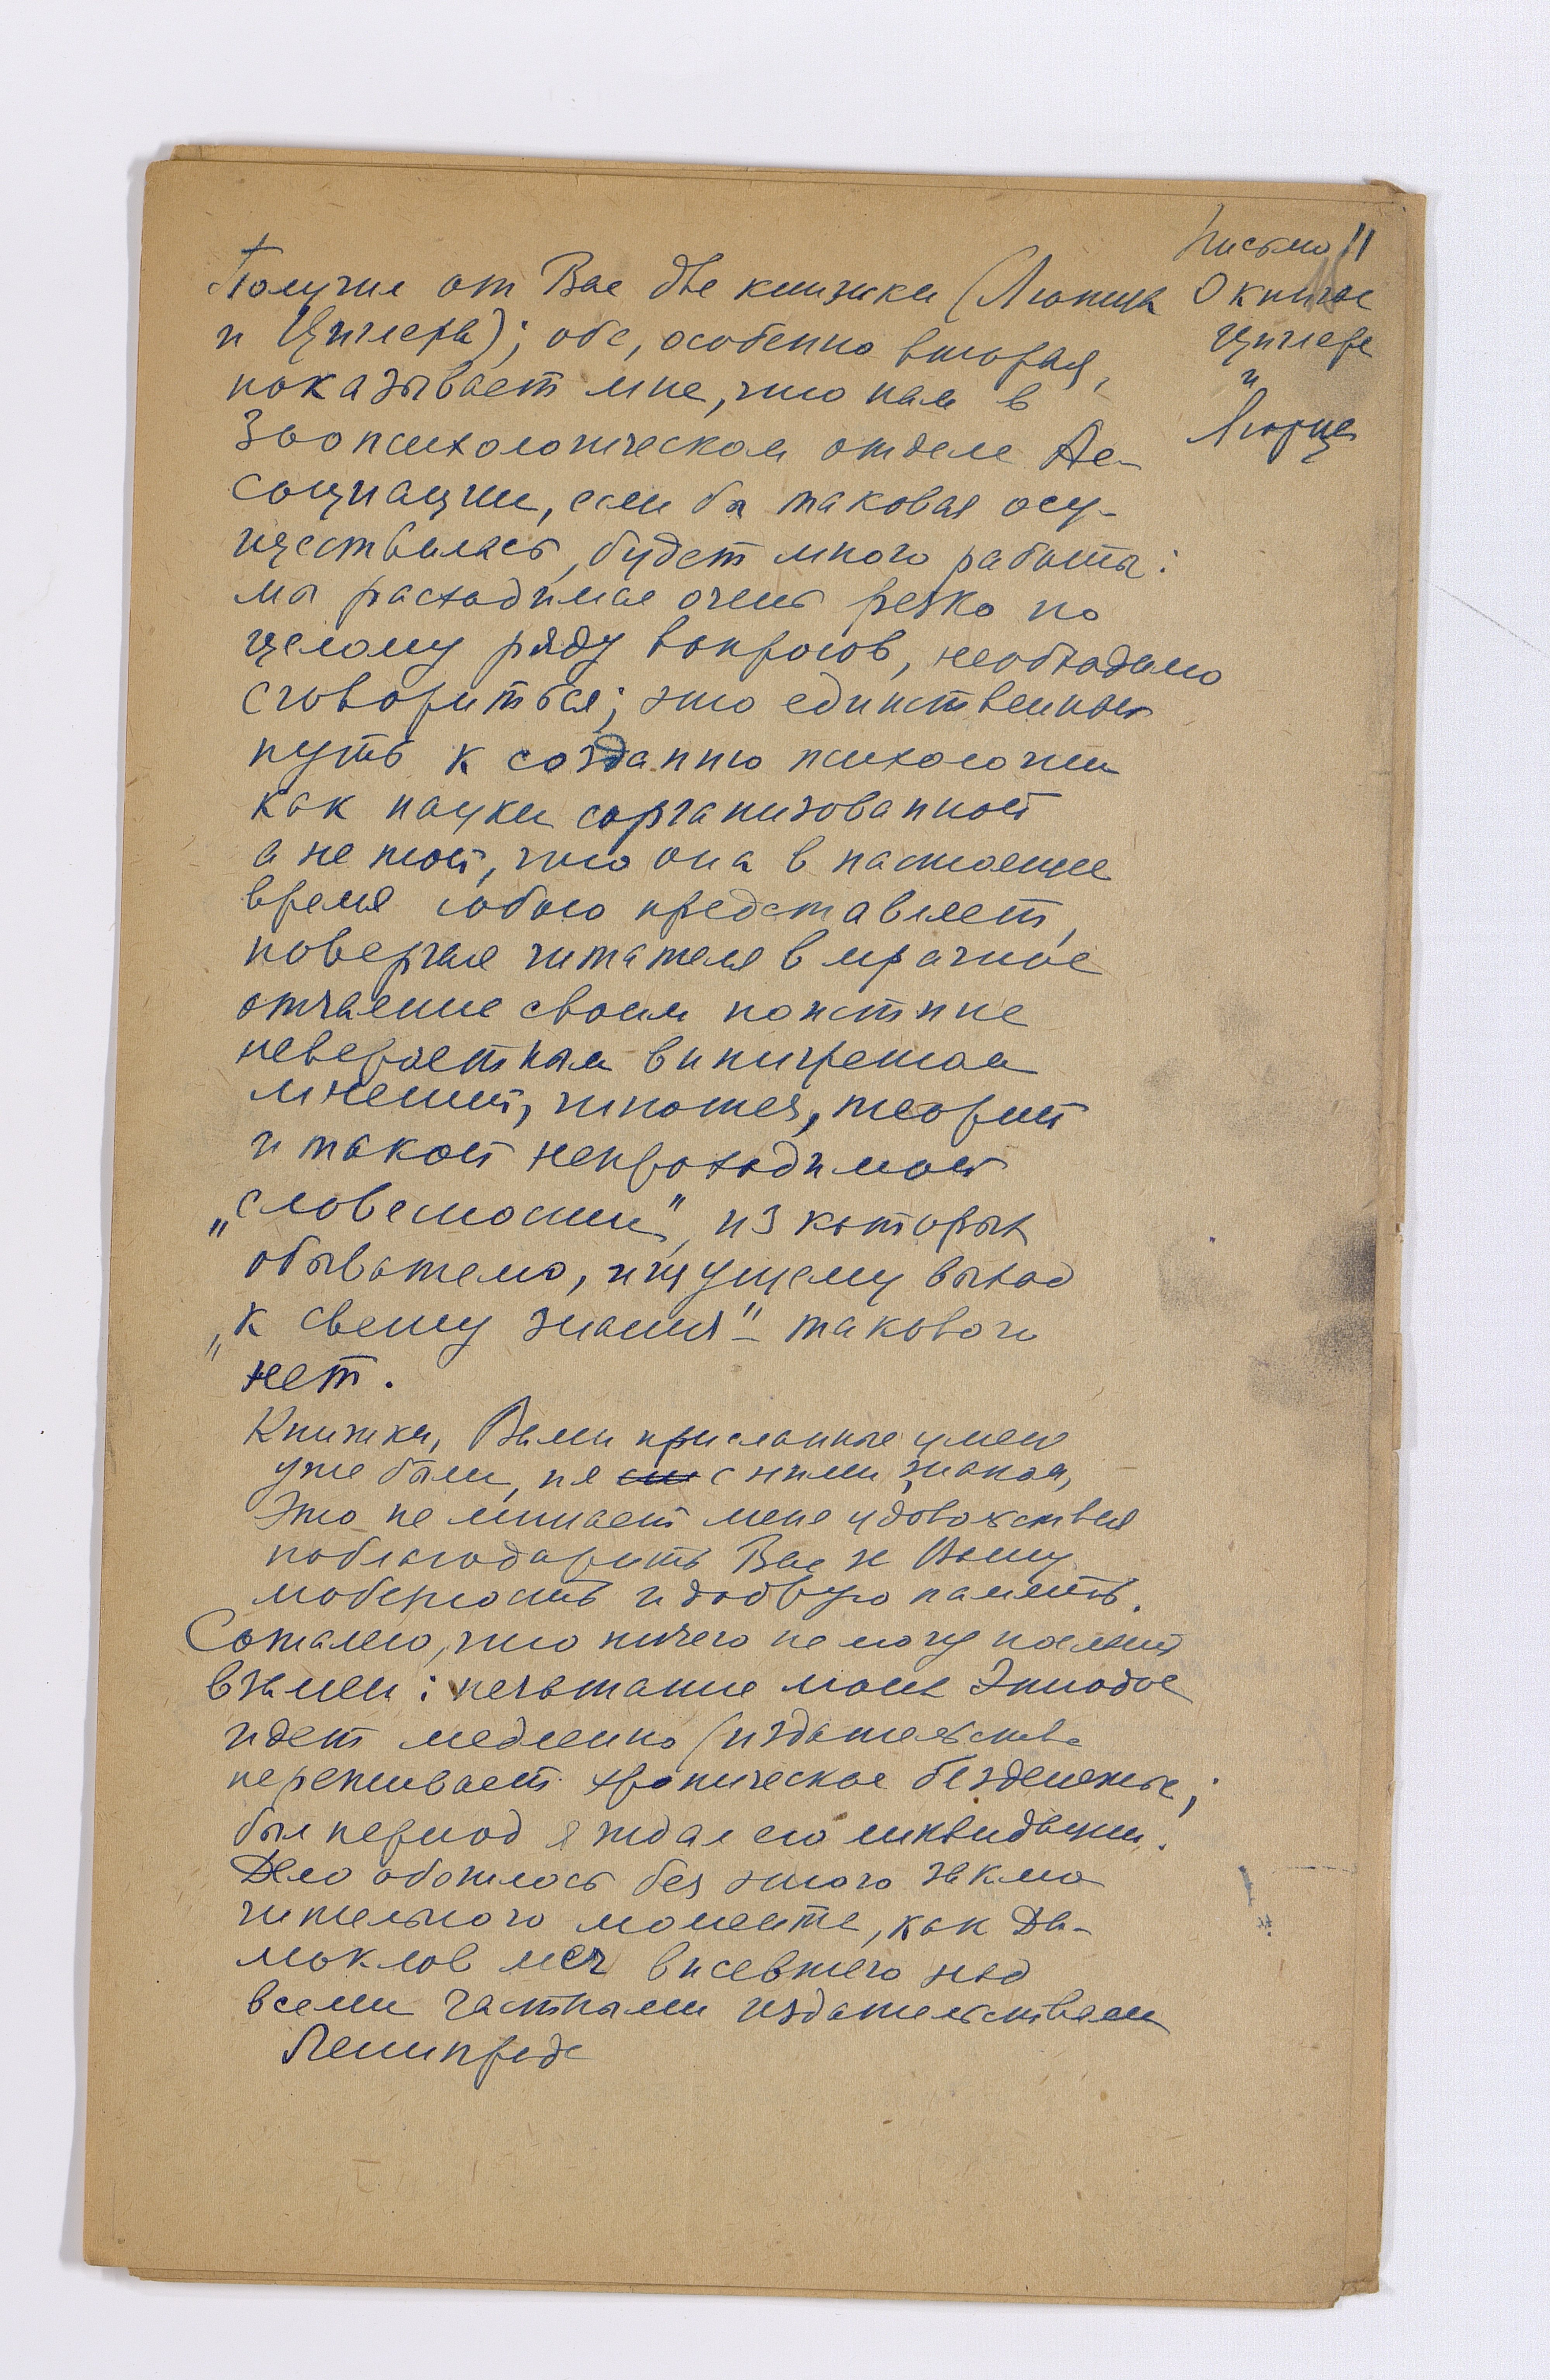 Письмо 11
О книгах
Циглера
и
Люрца
Получил от Вас две книжки (Люрица
и Циглера); обе, особенно вторая,
показывает мне, что нам в
Зоопсихологическом отделе Ас-
социации, если бы таковая осу-
ществилась, будет много работы:
мы расходимся очень резко по
целому ряду вопросов, необходимо
сговориться; это единственный
путь к созданию психологии
как науки сорганизованной
а не той, что она в настоящее
время собою представляет,
повергая читателя в мрачное
отчаяние своим поистине
невероятным винигретом
мнений, гипотез, теорий
и такой непроходимой
„словесности", из которых
обывателю, ищущему выход
„к свету знания" – такового
нет.
Книжки, Вами присланные у меня
уже были, и я с ними знаком,
Это не лишает меня удовольствия
поблагодарить Вас за Вашу
любезность и добрую память.
Сожалею, что ничего не могу послать
взамен: печатание моих Этюдов
идет медленно (издательство
переживает хроническое безденежье;
был период я ждал его ликвидации.
Дело обошлось без этого заклю
чительного момента, как Да-
моклов меч висевшего над
всеми частными издательствами
Ленинграда